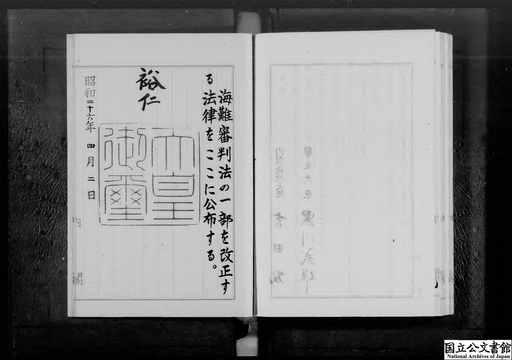 海難審判法の一部を改正す
る法律をここに公布する。
裕仁
天皇
御璽
昭和二十六年 四月 二日
内閣
国立公文書館
National Archives of Japan